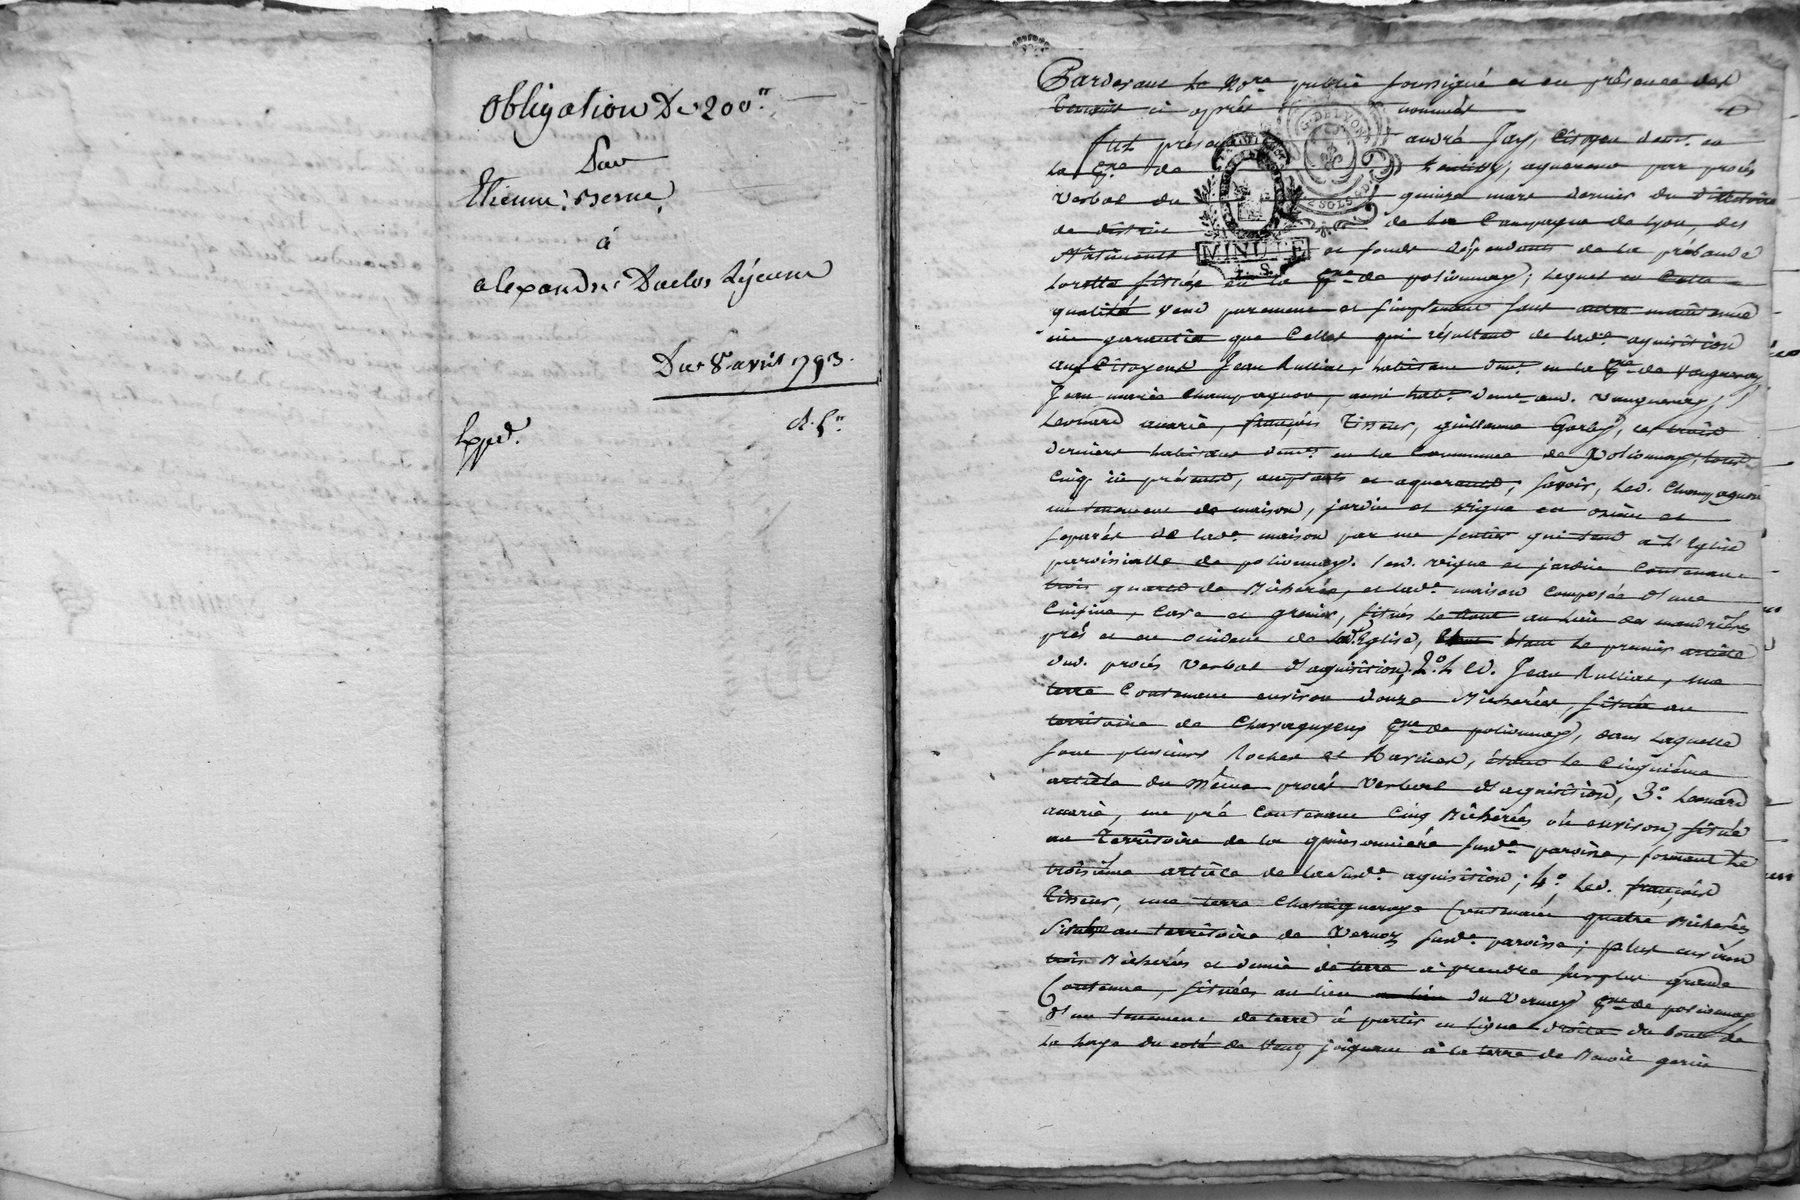 Obligation De 200ᵗᵗ
Par
Etienne Berne
à
alexandre Duclos Lyenne
Du 8 avril 1793.
Exped.
Pardevant Le Nore. public soussigné et en présence des
temoins ci après nommés
fut présent andré Jay, Citoyen demt. en
la Psse. de aquereur par procès
verbal du quinze mars dernier du directoire
de district de La Campagne de Lyon, des
Batiments et fonds dépendants de la prébande
Lorette située en la Psse. de polionnay; lequel en Cette
qualité vend purement et simplement sans autre maintenue
ni garantie que Celles qui résultent de lade. aquisition
aux Citoyens Jean Rulliat, habitant demt. en la Psse. de Vaugneray,
Jean marie Champagnon, aussi habt. demt. aud. Vaugneray,
Leonard avarie, françois Tisseur, guillaume Gorby, ces trois
derniers habitans demts. en la Commune de Polionnay, tous
Cinq ici présents, acceptants et aquereurs, savoir, Led. Champagnon
un tenement de maison, jardin et vigne en orient et
séparés de lade. maison par un sentier qui tend à l'Eglise
paroissialle de polionnay. Led. vigne et jardin Contenant
trois quarts de Bicherée, et lade. maison Composée d'une
Cuisine, Cave et grenier, situés le tout au lieu des
près et en occident de lad. Eglise, étant le premier article
dud. procès verbal d'aquisition, 2º. Led. Jean Rulliat, une
terre Contenant environ douze Bicherées, située au
territoire de Chavagneux Psse. de polionnay, dans laquelle
sont plusieurs Rochers et Ravines, étant le Cinquième
article du même procès verbal d'aquisition, 3º. Leonard
avarie, un pré Contenant Cinq Bicherées ou environ, situé
au Territoire de la susde. paroisse, formant le
troisième article de la susde. aquisition; 4º. Led. françois
Tisseur, une terre Chataigneraye Contenant quatre Bicherées
Située au territoire de Vernoy susde. paroisse; plus environ
trois Bicherées et demie de terre à prendre sur plus grande
Contenue, située au lieu au lieu du Vernay Psse. de polionnay
d'un tenement de terre à partir en ligne droite du bout de
la haye du coté de vent, joignant à la terre de Benoit
MINUTE
G. DE LYON
2 SOLS